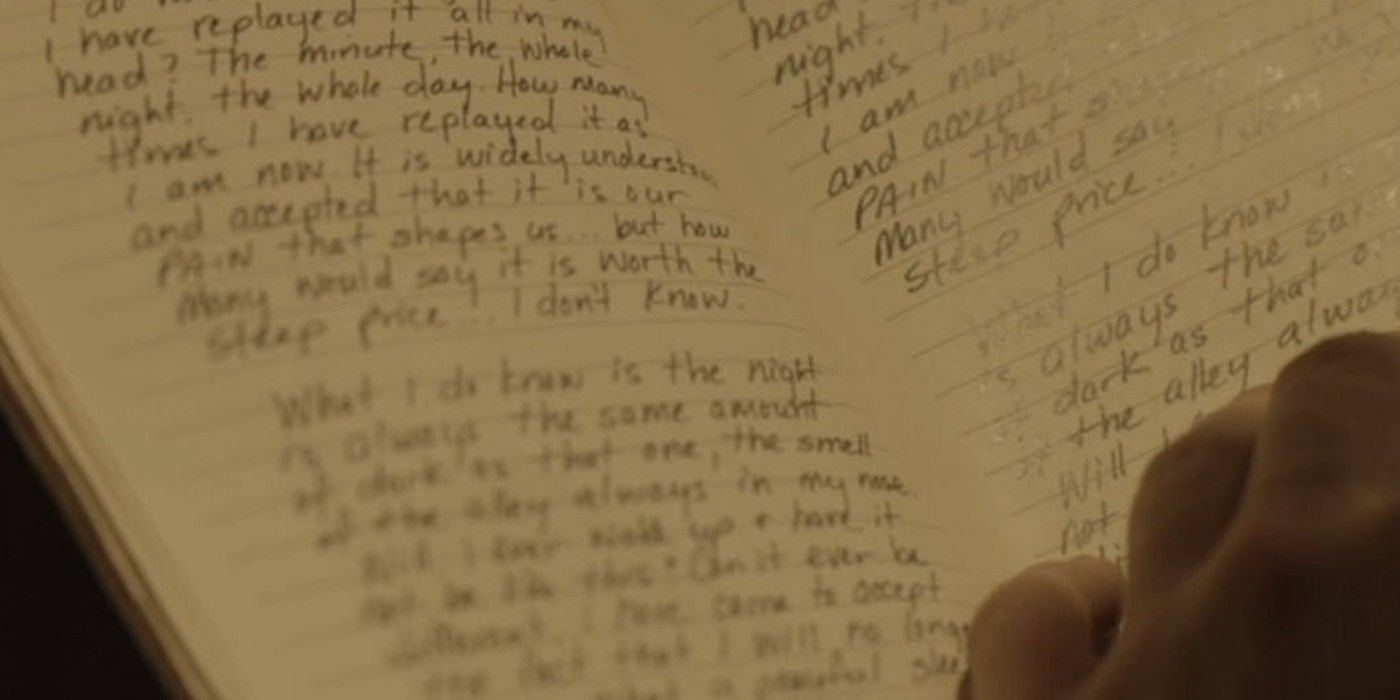 I do
I have replayed it all in my
head? The minute, the whole
night. the whole day. How many
times I have replayed it as
I am now It is widely understo
and accepted that it is our
PAIN that shapes us... but how
Many would say it is worth the
steep price... I don't know.
What I do know is the night
is always the same amount
of dark as that one, the smell
of the alley always in my nose.
Will I ever wake up + have it
not be like this? Can it ever be
different. I have come to accept
the fact that I will no long
a peaceful slee
head
night.
times I
I am now
and accepted
PAIN that
Many would say
steep price... I don't
I do know is
is always the sa
dark as that o
the alley alway
Will
not